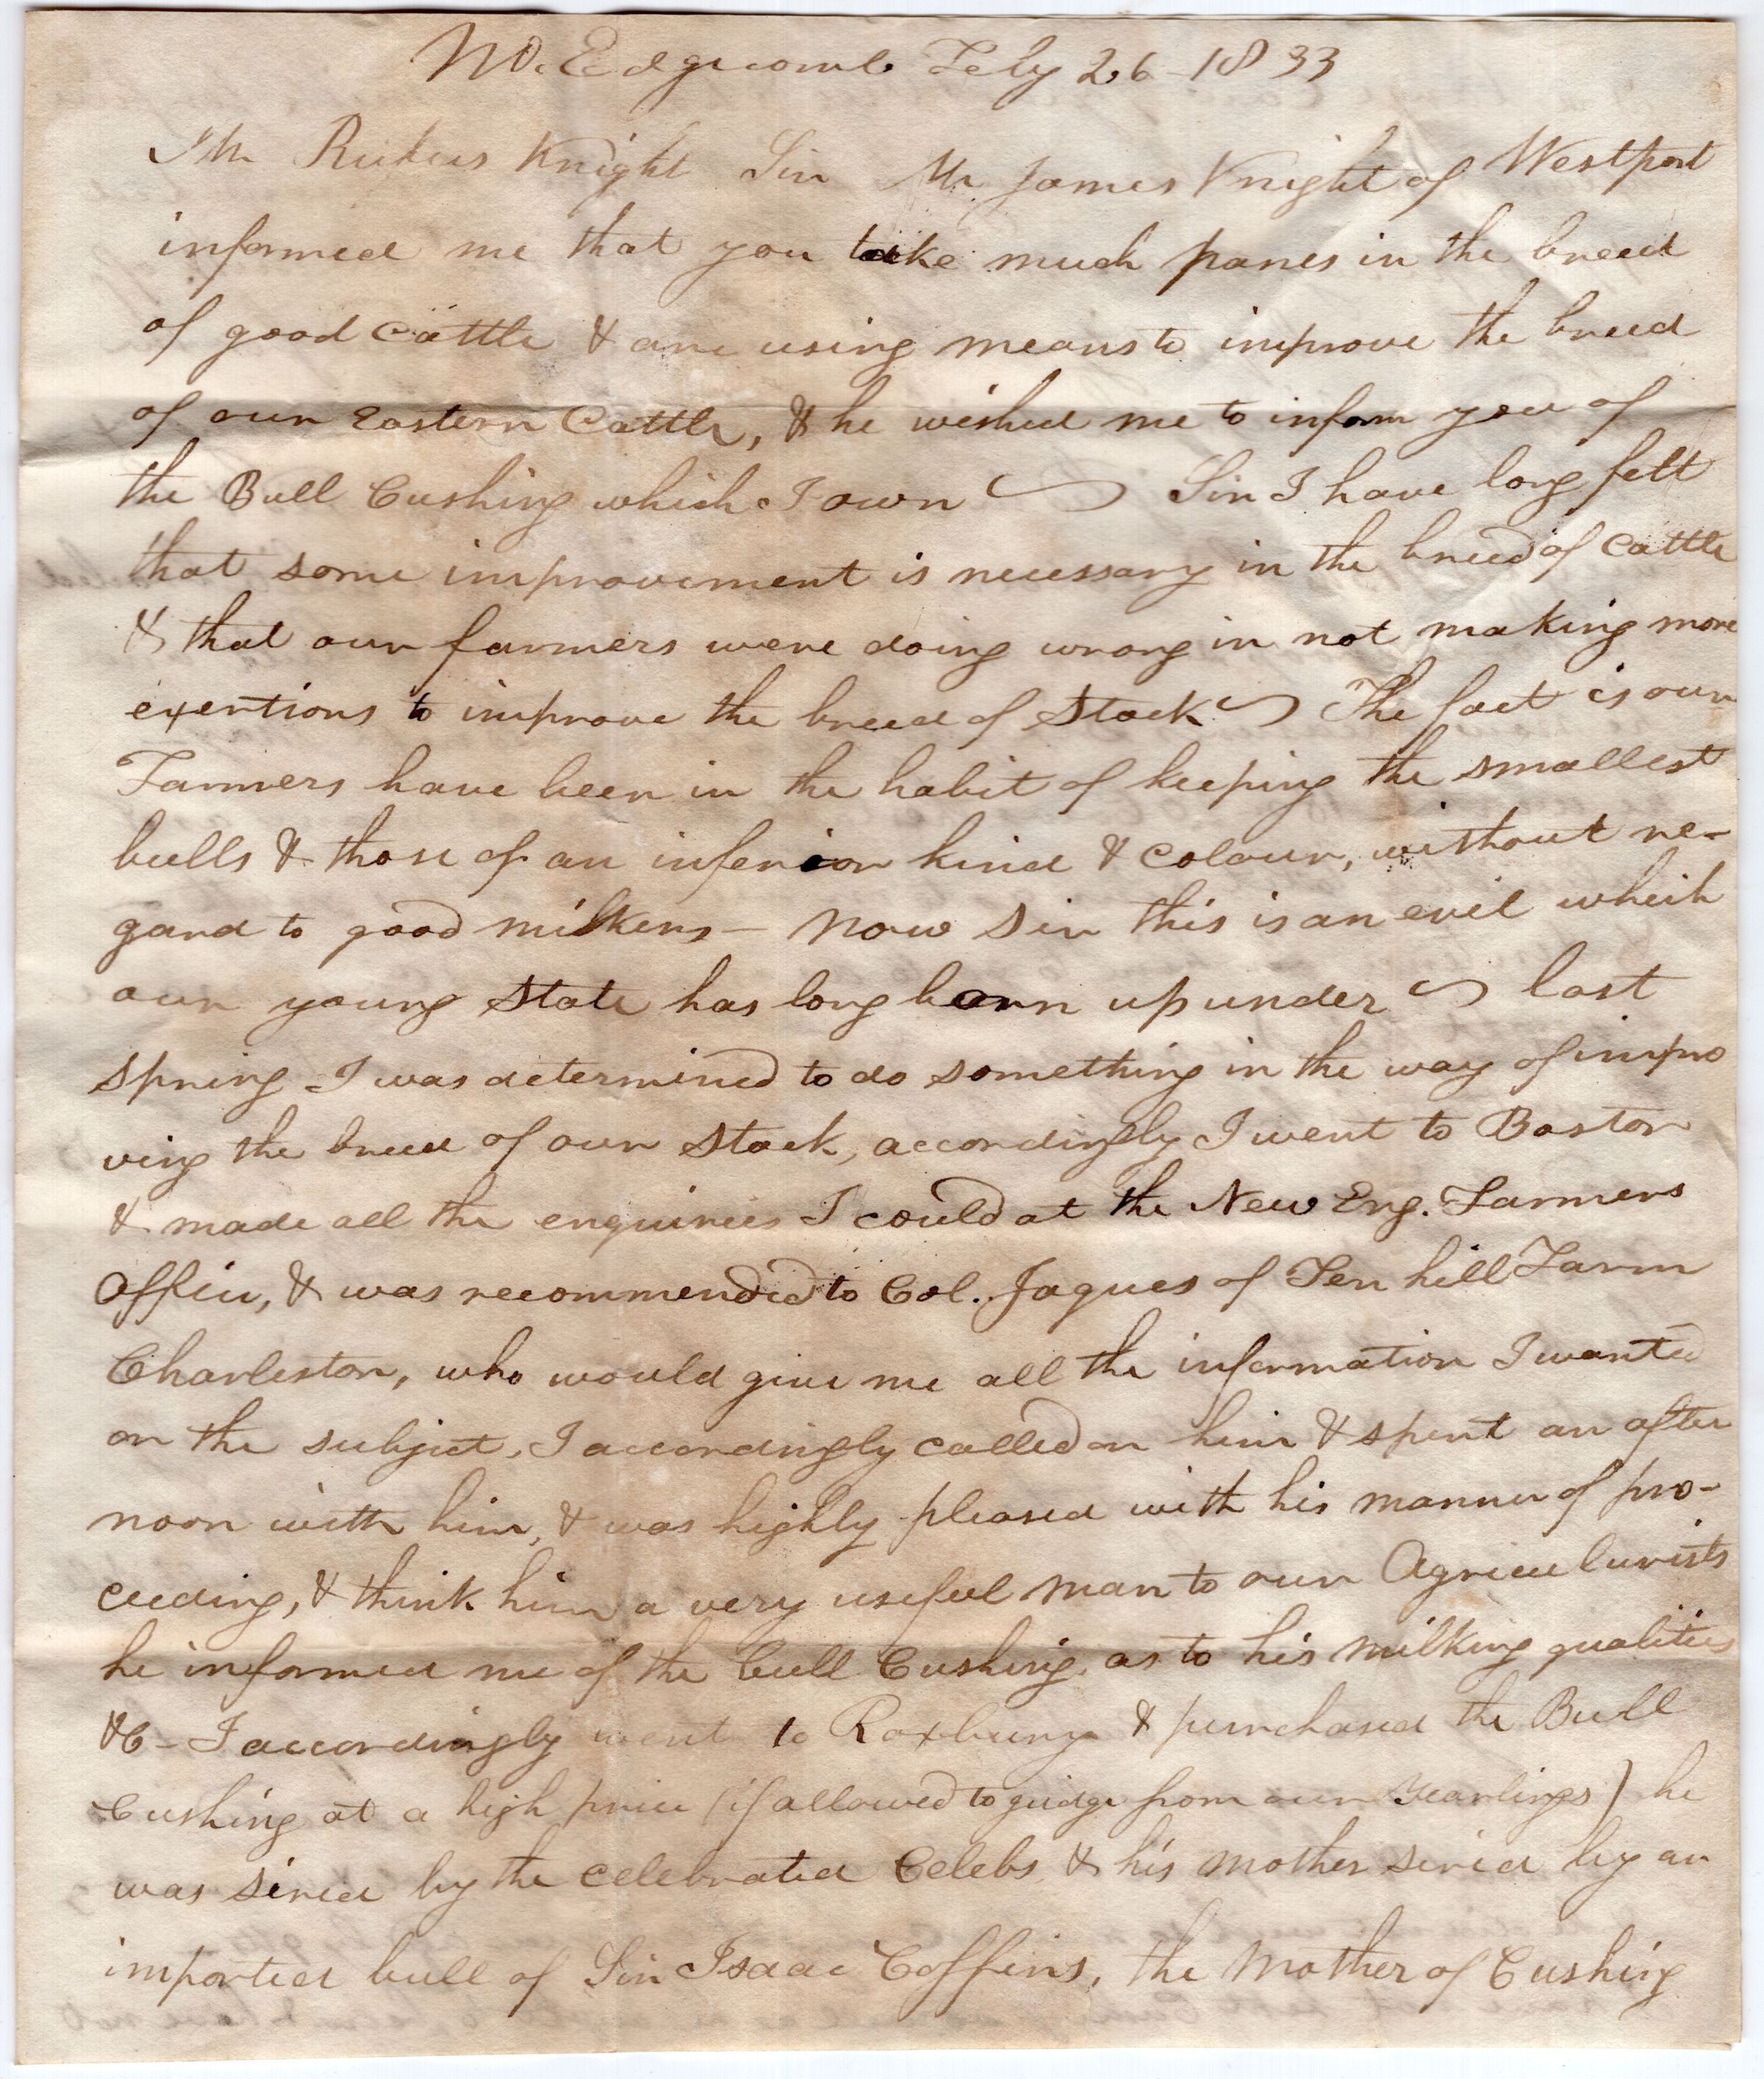 No. Edgecomb Feby 26 - 1833
Mr Rufus Knight Sir Mr James Knight of Westport
informed me that you take much panes in the breed
of good Cattle & are using means to improve the breed
of our Eastern Cattle, & he wished me to inform you of
the Bull Cushing which I own ~ Sir I have long felt
that some improvement is necessary in the breed of Cattle
& that our farmers were doing wrong in not making more
exertions to improve the breed of Stock ~ The fact is our
Farmers have been in the habit of keeping the smallest
bulls & those of an inferior kind & colour, without re-
gard to good milkers - Now Sir this is an evil which
our young State has long born up under ~ last
spring I was determined to do something in the way of impro
ving the breed of our Stock, accordingly I went to Boston
& made all the enquiries I could at the New Eng. Farmers
Office, & was recommended to Col. Jaques of Ten hill Farm
Charleston, who would give me all the information I wanted
on the subject, I accordingly called on him & spent an after
noon with him, & was highly pleased with his manner of pro-
ceeding, & think him a very useful man to our Agriculurists
he informed me of the bull Cushing, as to his milking qualities
&C - I accordingly went to Roxbury & purchased the Bull
Cushing at a high price (if allowed to gudge from our Yearlings) he
was sired by the celebrated Celebs & his mother sired by an
imported bull of Sir Isaac Coffins, the Mother of Cushing